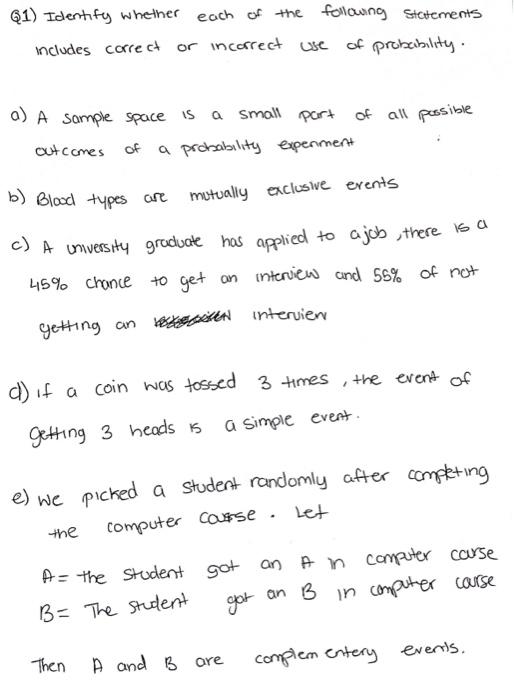 Q1) Identify whether each of the following statements
includes correct or incorrect use of probability.
a) A sample space is a small part of all possible
outcomes of a probability experiment
b) Blood types are mutually exclusive events
c) A university graduate has applied to a job, there is a
45% chance to get an interview and 55% of not
getting an interview
d) if a coin was tossed 3 times, the event of
getting 3 heads is a simple event.
e) we picked a student randomly after completing
the computer course. Let
A = the student got an A in computer course
B = The student got an B in computer course
Then A and B are complementery events.